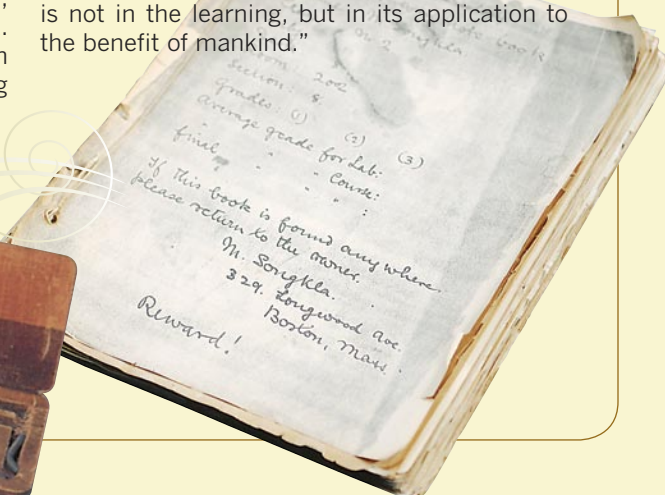 is not in the learning, but in its application to
the benefit of mankind.”
’
.
n
g
note book
Songkla
Room: 202
Section: 8.
grades: (1) (2) (3)
average grade for Lab:
final " " Course:
" " " :
If this book is found anywhere.
please return to the owner.
M. Songkla.
329. Longwood Ave.
Boston, Mass.
Reward!